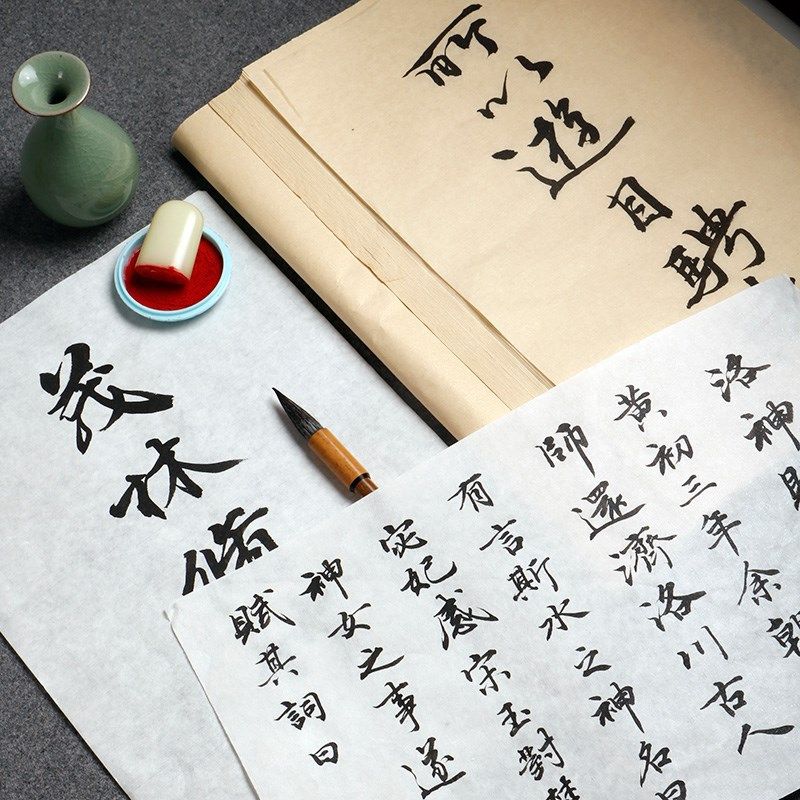 所以遊目騁
茂林脩
洛神
黄初三年余朝
師還濟洛川古人
有言斯水之神名曰
宓妃感宋玉對楚
神女之事遂
賦其詞曰